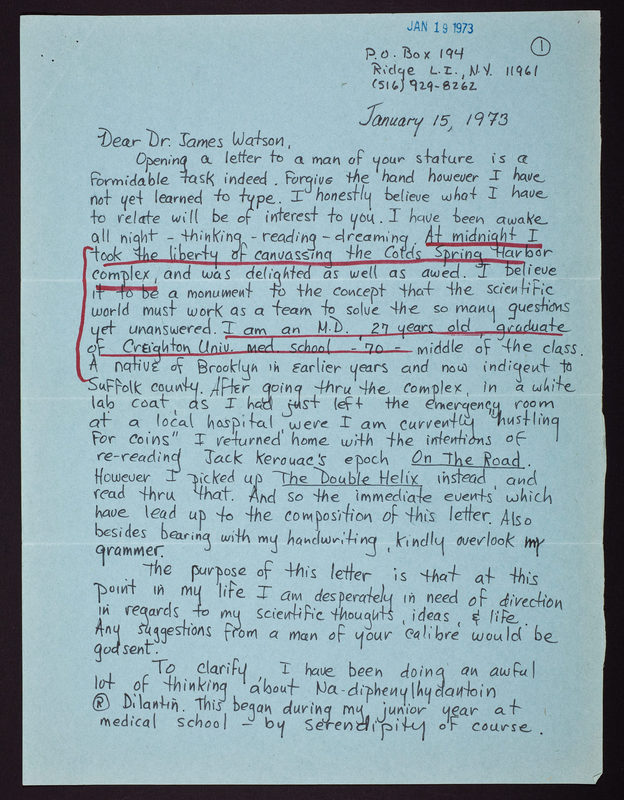 JAN 19 1973
1
P.O. Box 194
Ridge L.I., N.Y. 11961
(516) 929-8262
January 15, 1973
Dear Dr. James Watson,
Opening a letter to a man of your stature is a
formidable task indeed. Forgive the hand however I have
not yet learned to type. I honestly believe what I have
to relate will be of interest to you. I have been awake
all night - thinking - reading - dreaming. At midnight I
took the liberty of canvassing the Colds Spring Harbor
complex, and was delighted as well as awed. I believe
it to be a monument to the concept that the scientific
world must work as a team to solve the so many questions
yet unanswered. I am an M.D., 27 years old, graduate
of Creighton Univ. med. school - '70 - middle of the class.
A native of Brooklyn in earlier years and now indigent to
Suffolk county. After going thru the complex, in a white
lab coat, as I had just left the emergency room
at a local hospital, were I am currently "hustling
for coins" I returned home with the intentions of
re-reading Jack Kerouac's epoch On The Road.
However I picked up The Double Helix instead, and
read thru that. And so the immediate events which
have lead up to the composition of this letter. Also
besides bearing with my handwriting, kindly overlook my
grammer.
The purpose of this letter is that at this
point in my life I am desperately in need of direction
in regards to my scientific thoughts, ideas, & life.
Any suggestions from a man of your calibre would be
godsent.
To clarify I have been doing an awful
lot of thinking about Na-diphenylhydantoin
® Dilantin. This began during my junior year at
medical school - by serendipity of course.